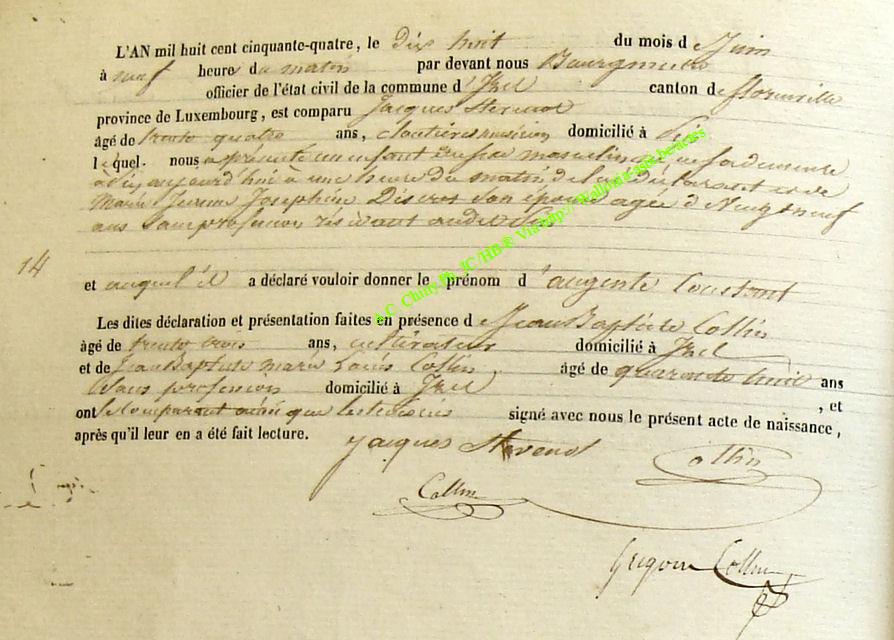 L'AN mil huit cent cinquante-quatre, le dix huit du mois de Juin
à neuf heure du matin par devant nous Bourgmestre
officier de l'état civil de la commune d'Izel canton de Florenville
province de Luxembourg, est comparu Jacques Stevenot
âgé de trente quatre ans, cloutier domicilié à
lequel nous a présenté un enfant du sexe masculin né
aujourd'hui à une heure du matin de lui déclarant et de
Marie Josephine son épouse agée de Vingt neuf
ans sans profession
14
et auquel il a déclaré vouloir donner le prénom d
Les dites déclaration et présentation faites en présence de Jean Baptiste Collin
âgé de trente trois ans, cultivateur domicilié à Izel
et de Jean Baptiste marie Louis Collin, âgé de quarante huit ans
sans profession domicilié à Izel , et
ont le Comparant ainsi que les témoins signé avec nous le présent acte de naissance,
après qu'il leur en a été fait lecture.
Jacques Stevenot Collin
Collin
Grégoire Collin